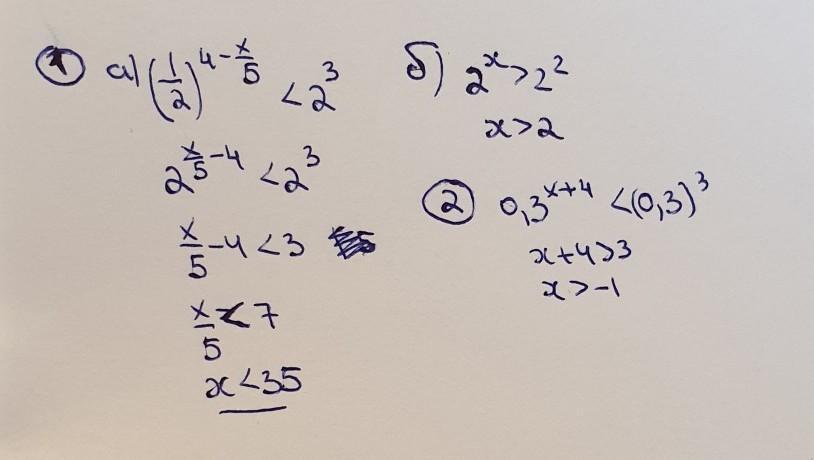 ① а) (1/2)^(4-x/5) < 2^3
2^(x/5-4) < 2^3
x/5 - 4 < 3
x/5 < 7
x < 35
б) 2^x > 2^2
x > 2
② 0,3^(x+4) < (0,3)^3
x + 4 > 3
x > -1